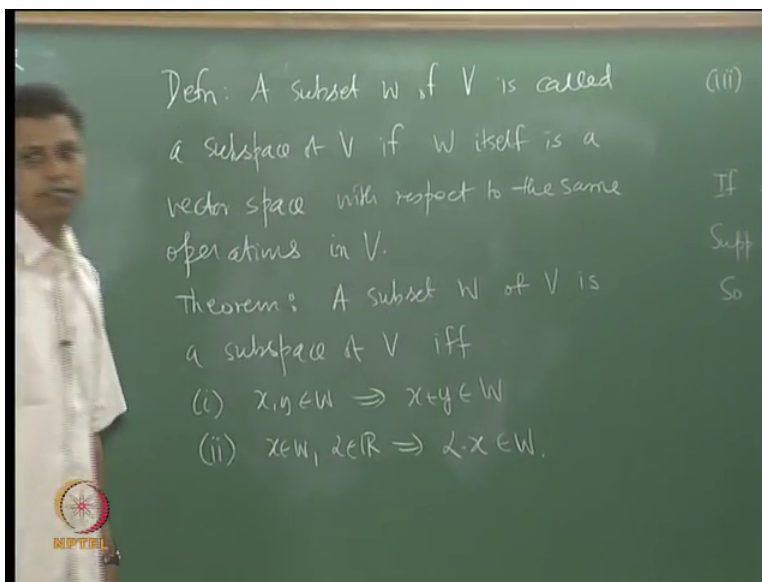 Defn: A subset W of V is called
a subspace of V if W itself is a
vector space with respect to the same
operations in V.
Theorem: A subset W of V is
a subspace of V iff
(i) x, y ∈ W ⇒ x+y ∈ W
(ii) x ∈ W, α ∈ ℝ ⇒ α·x ∈ W.
(iii)
If
Supp
So
NPTEL